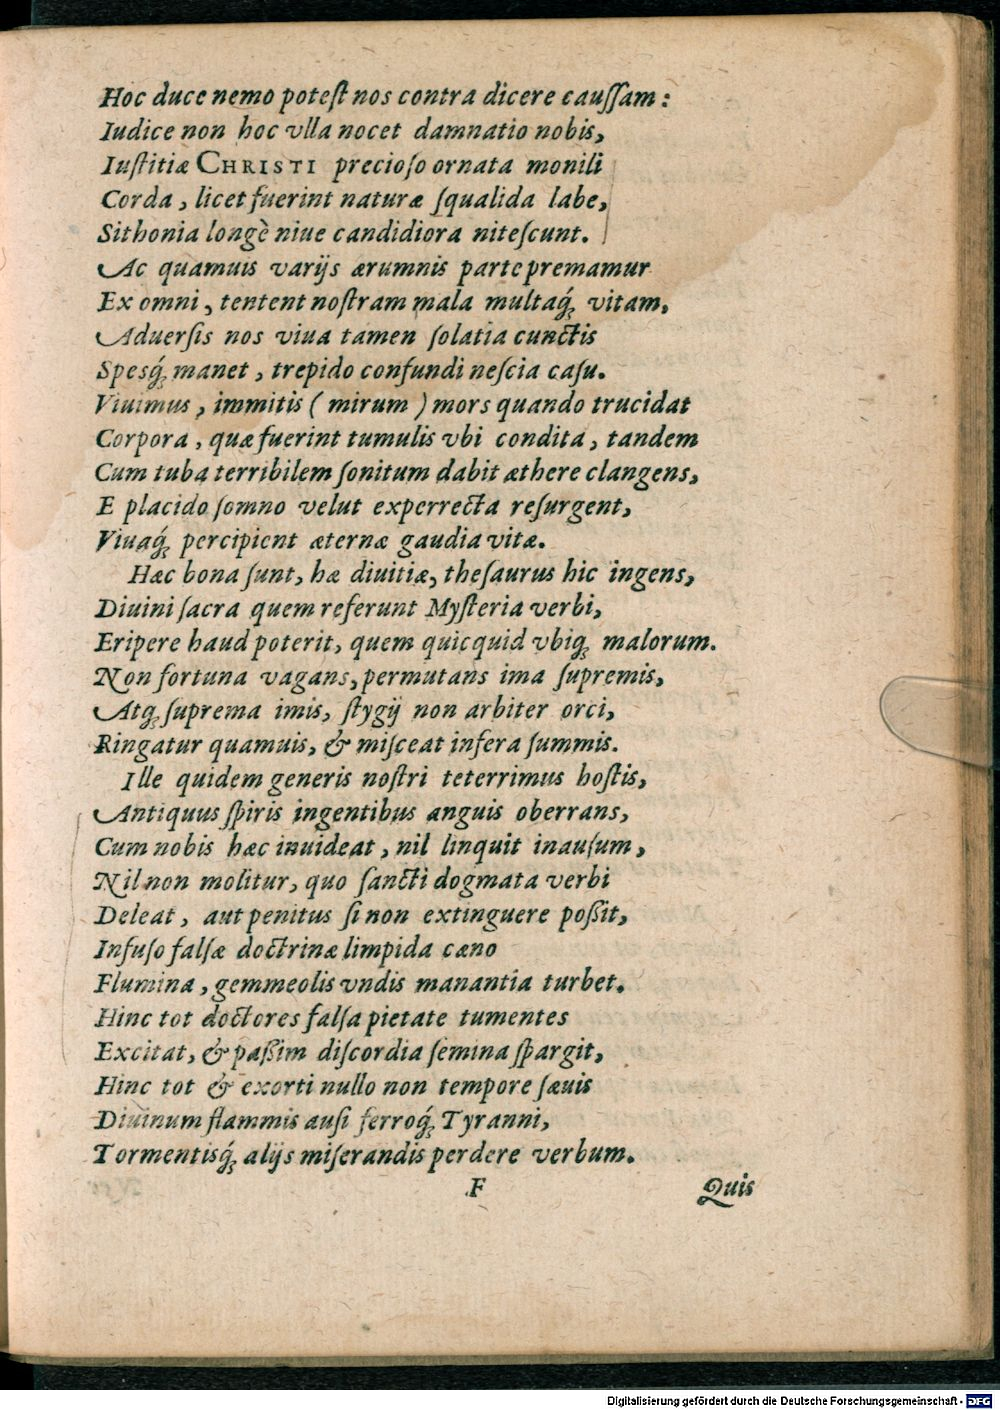 Hoc duce nemo poteſt nos contra dicere cauſſam:
Iudice non hoc vlla nocet damnatio nobis,
Iuſtitiæ CHRISTI precioſo ornata monili
Corda, licet fuerint naturæ ſqualida labe,
Sithonia longè niue candidiora niteſcunt.
Ac quamuis varijs ærumnis parte premamur
Ex omni, tentent noſtram mala multaq́ꝫ vitam,
Aduerſis nos viua tamen ſolatia cunctis
Spesq́ꝫ manet, trepido confundi neſcia caſu.
Viuimus, immitis (mirum) mors quando trucidat
Corpora, quæ fuerint tumulis vbi condita, tandem
Cum tuba terribilem ſonitum dabit æthere clangens,
E placido ſomno velut experrecta reſurgent,
Viuaq́ꝫ percipient æternæ gaudia vitæ.
Hæc bona ſunt, hæ diuitiæ, theſaurus hic ingens,
Diuini ſacra quem referunt Myſteria verbi,
Eripere haud poterit, quem quicquid vbiqꝫ malorum.
Non fortuna vagans, permutans ima ſupremis,
Atqꝫ ſuprema imis, ſtygij non arbiter orci,
Ringatur quamuis, & miſceat infera ſummis.
Ille quidem generis noſtri teterrimus hoſtis,
Antiquus ſpiris ingentibus anguis oberrans,
Cum nobis hæc inuideat, nil linquit inauſum,
Nil non molitur, quo ſancti dogmata verbi
Deleat, aut penitus ſi non extinguere poßit,
Infuſo falſæ doctrinæ limpida cæno
Flumina, gemmeolis vndis manantia turbet.
Hinc tot doctores falſa pietate tumentes
Excitat, & paßim diſcordia ſemina ſpargit,
Hinc tot & exorti nullo non tempore ſæuis
Diuinum flammis auſi ferroq́ꝫ Tyranni,
Tormentisq́ꝫ alijs miſerandis perdere verbum.
F Quis
Digitalisierung gefördert durch die Deutsche Forschungsgemeinschaft - DFG